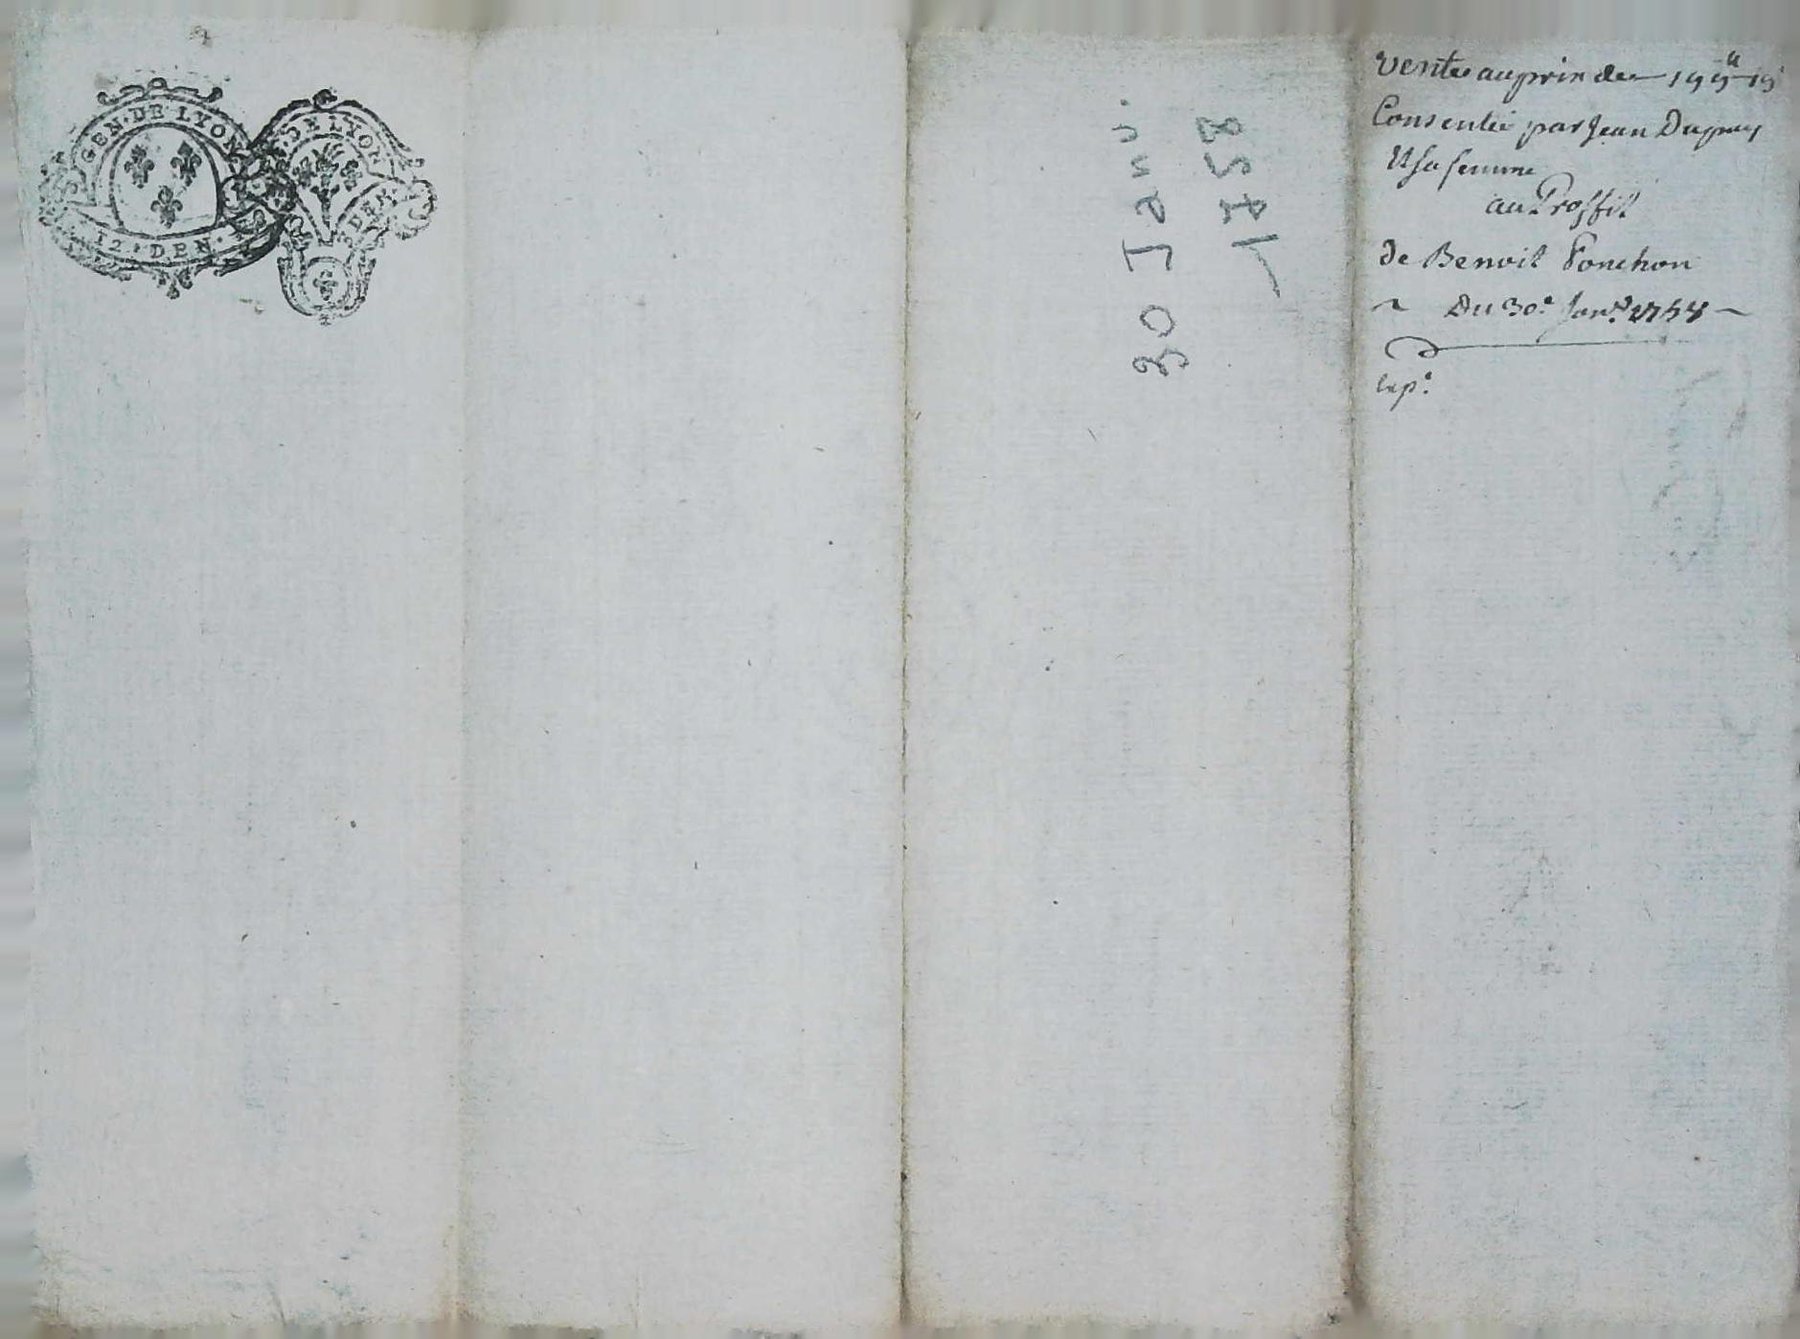 GEN · DE · LYON
12 · DEN
DE LYON
DEN
30 Janv.
1758
vente au prix de 199ᵗᵗ 19ˢ
Consentie par Jean Dupuy
Et sa femme
au Proffit
de Benoit Ponchon
~ Du 30ᵉ Janᵛ 1758 ~
Exp.ᵉ